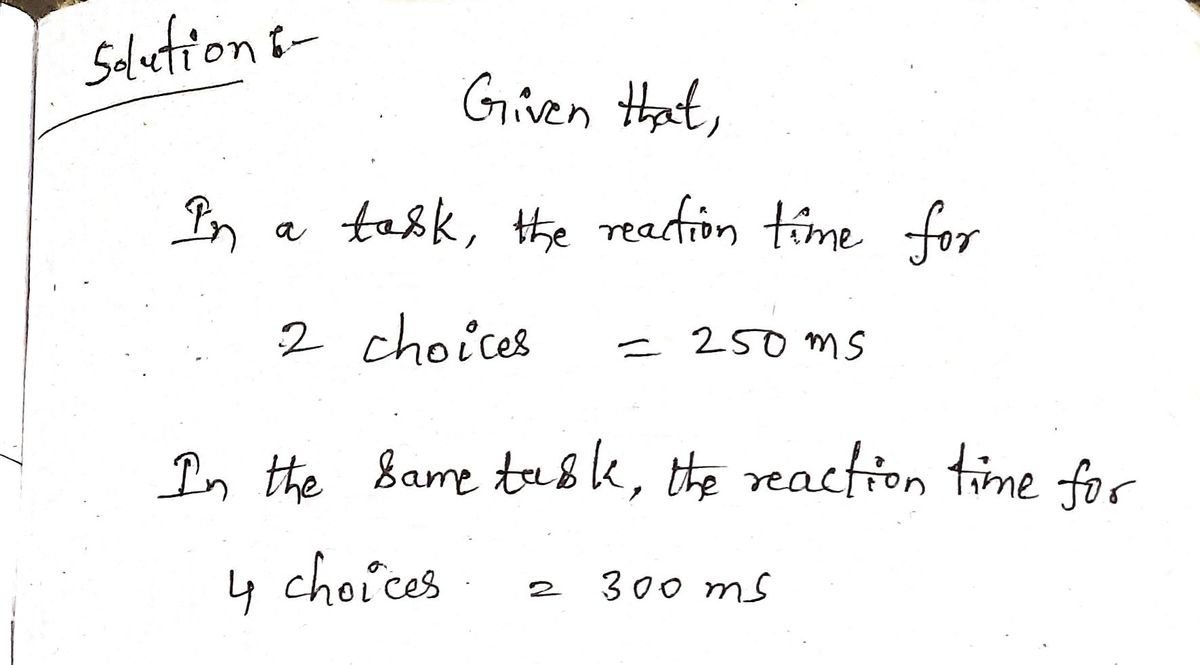 Solution :-
Given that,
In a task, the reaction time for
2 choices = 250 ms
In the same task, the reaction time for
4 choices = 300 ms